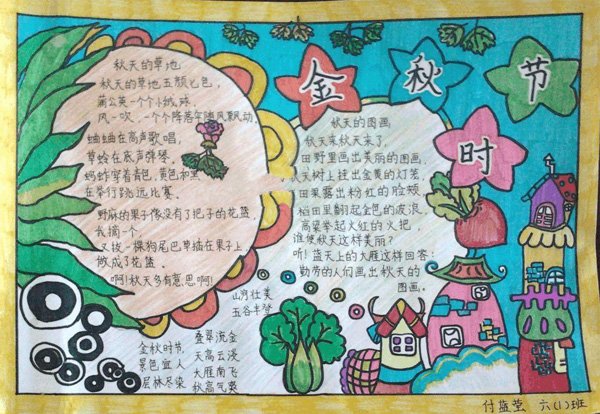 金秋时节
秋天的草地
秋天的草地五颜七色，
蒲公英一个个小绒球，
风一吹，一个个降落伞随风飘动。
蛐蛐在高声歌唱，
草蛉在低声弹琴，
蚂蚱穿着青色、黄色和黑
在举行跳远比赛。
野麻的果子像没有了把子的花篮，
我摘一个，
又拔一棵狗尾巴草插在果子上
做成了花篮。
啊！秋天多有意思啊！
秋天的图画
秋天来秋天来了，
田野里画出美丽的图画，
秋天树上挂出金黄的灯笼，
田果露出粉红的脸颊，
稻田里翻起金色的波浪，
高粱举起火红的火把，
谁使秋天这样美丽？
听！蓝天上的大雁这样回答：
勤劳的人们画出秋天的
图画。
山河壮美
五谷丰登
金秋时节，
景色宜人
层林尽染
叠翠流金
天高云淡
大雁南飞
秋高气爽
付蓝莹 六(1)班